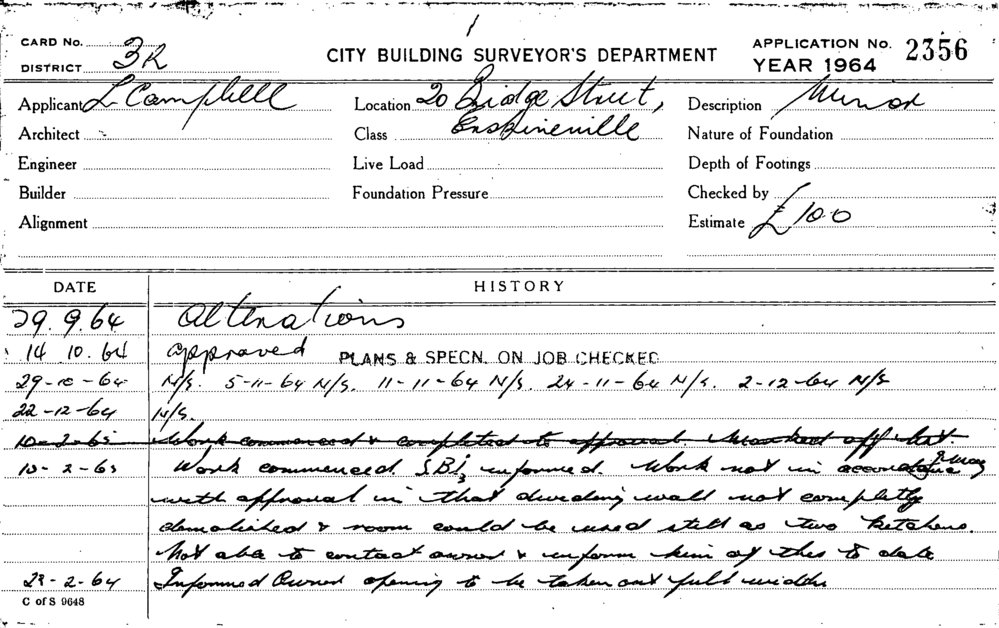 CARD No.
DISTRICT 3R
CITY BUILDING SURVEYOR'S DEPARTMENT
APPLICATION No. 2356
YEAR 1964
Applicant L Campbell
Location 20 Bridge Street,
Description Minor
Architect
Class Erskineville
Nature of Foundation
Engineer
Live Load
Depth of Footings
Builder
Foundation Pressure
Checked by
Alignment
Estimate £100
DATE HISTORY
29.9.64 Alterations
14 10.64 approved PLANS & SPECN. ON JOB CHECKED
29-10-64 N/S. 5-11-64 N/S. 11-11-64 N/S. 24-11-64 N/S. 2-12-64 N/S
22-12-64 N/S.
10-2-65 Work commenced & completed to approval
10-2-65 Work commenced. informed. Work not in accordance
with approval in that dividing wall not completly
demolished & room could be used still as two kitchens.
Not able to contact owner & inform him of this to date
23-2-64 Informed Owner opening to be taken out full width
C of S 9648